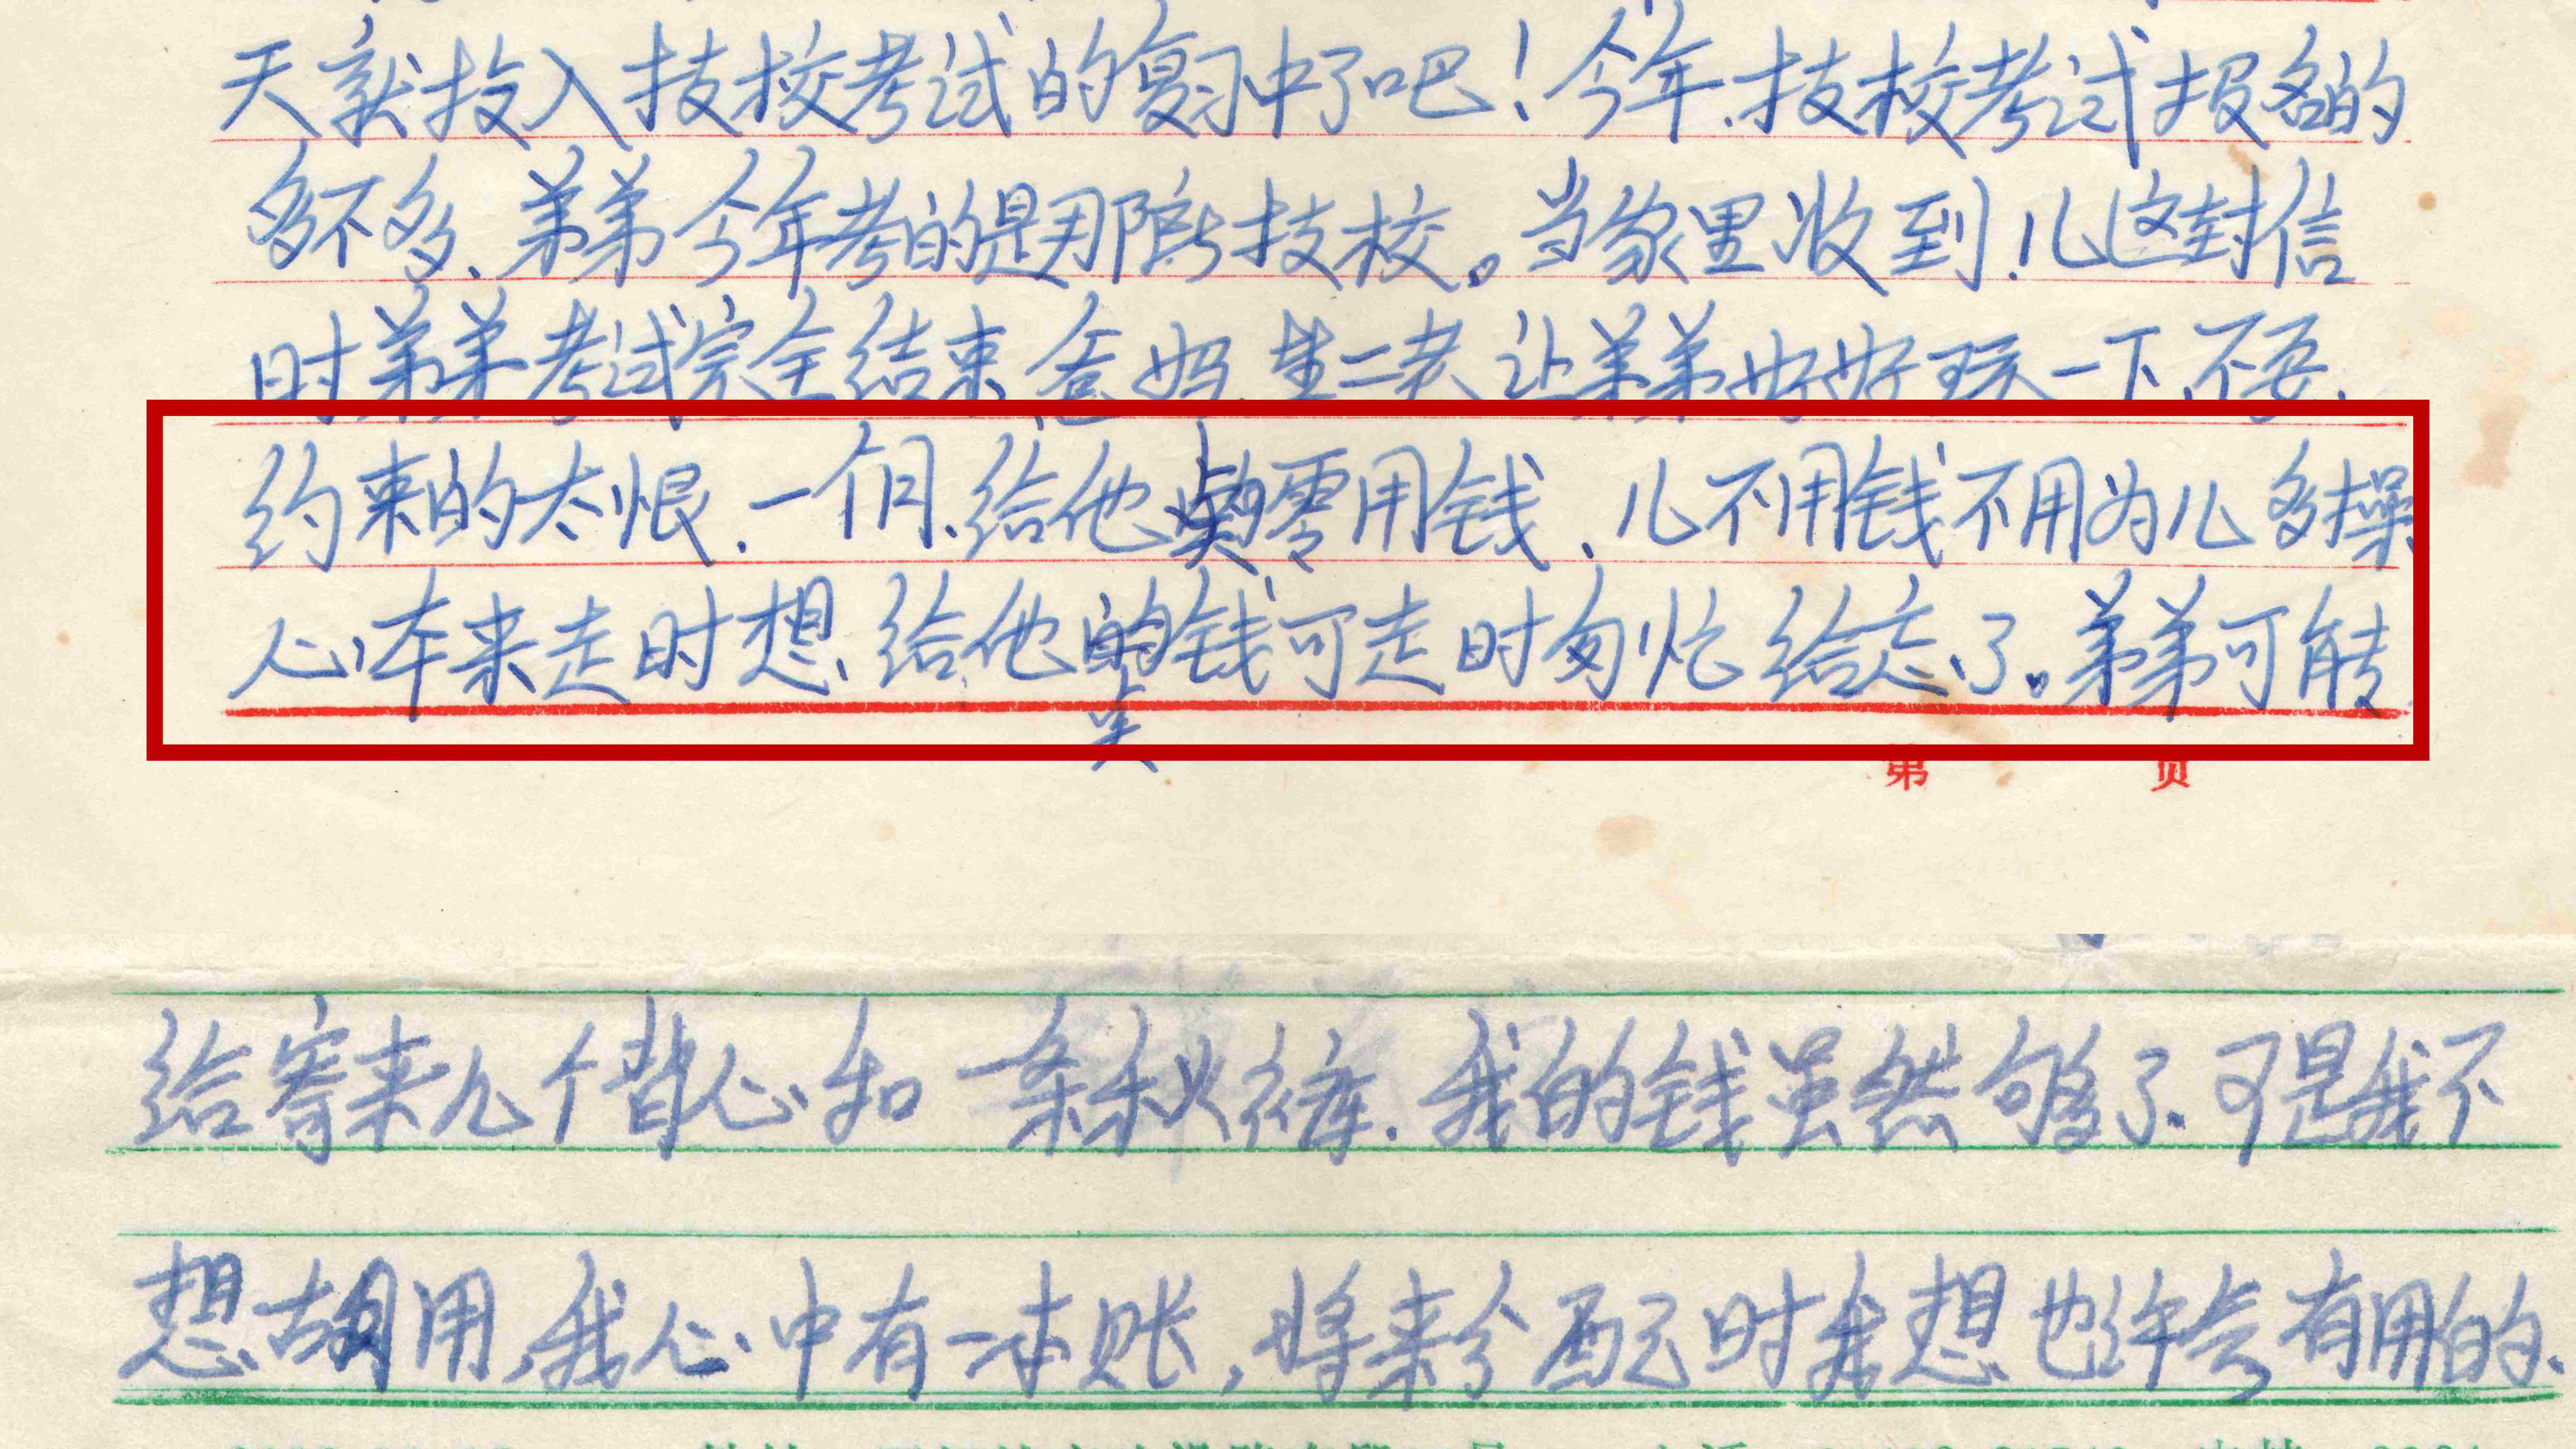 天就投入技校考试的复习中了吧！今年.技校考试报名的
多不多、弟弟今年考的是那所技校。当家里收到儿这封信
时弟弟考试完全结束爸妈 二老让弟弟好好玩一下、不要
约束的太恨.一个月、给他点零用钱、儿不用钱不用为儿多操
心、本来走时想、给他点钱可走时匆忙给忘了。弟弟可能
第 页
给寄来几个背心和一条秋裤.我的钱虽然够了、可是我不
想胡用,我心中有一本账,将来分配时我想也许会有用的、